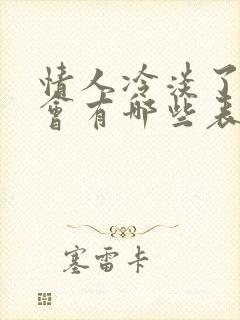 情人冷淡了
會有哪些表
塞雷卡